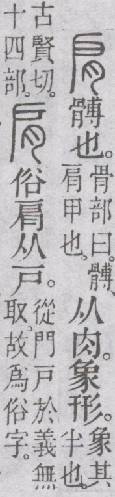 肩髆也。骨部曰。髆、
肩甲也。
从肉。象形。象其
半也。
古賢切。
十四部。
肩俗肩从戶。從門戶於義無
取。故爲俗字。